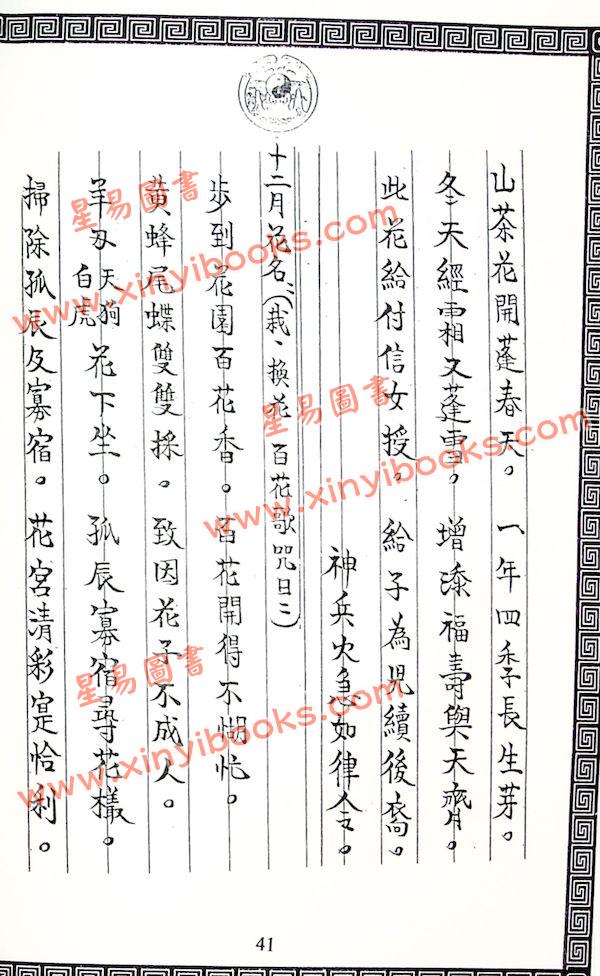 山茶花開蓬春天。一年四季長生芽。
冬天經霜又蓬雪。增添福壽與天齊。
此花給付信女授。給子為児續後裔。
神兵火急如律令。
十二月花名:(栽、換花 百花歌咒曰:)
步到花園百花香。百花開得不惆忙。
黃蜂尾蝶雙雙採。致因花子不成人。
羊刃天狗白虎花下坐。孤辰寡宿尋花樣。
掃除孤辰及寡宿。花宮清彩寔恰利。
41
星易圖書
www.xinyibooks.com
星易圖書
www.xinyibooks.com
星易圖書
www.xinyibooks.com